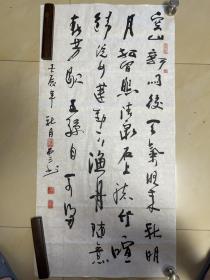 空山新雨後天氣晚来秋明
月松間照清泉石上流竹喧
歸浣女蓮動下漁舟隨意
春芳歇王孫自可留
壬辰年秋月